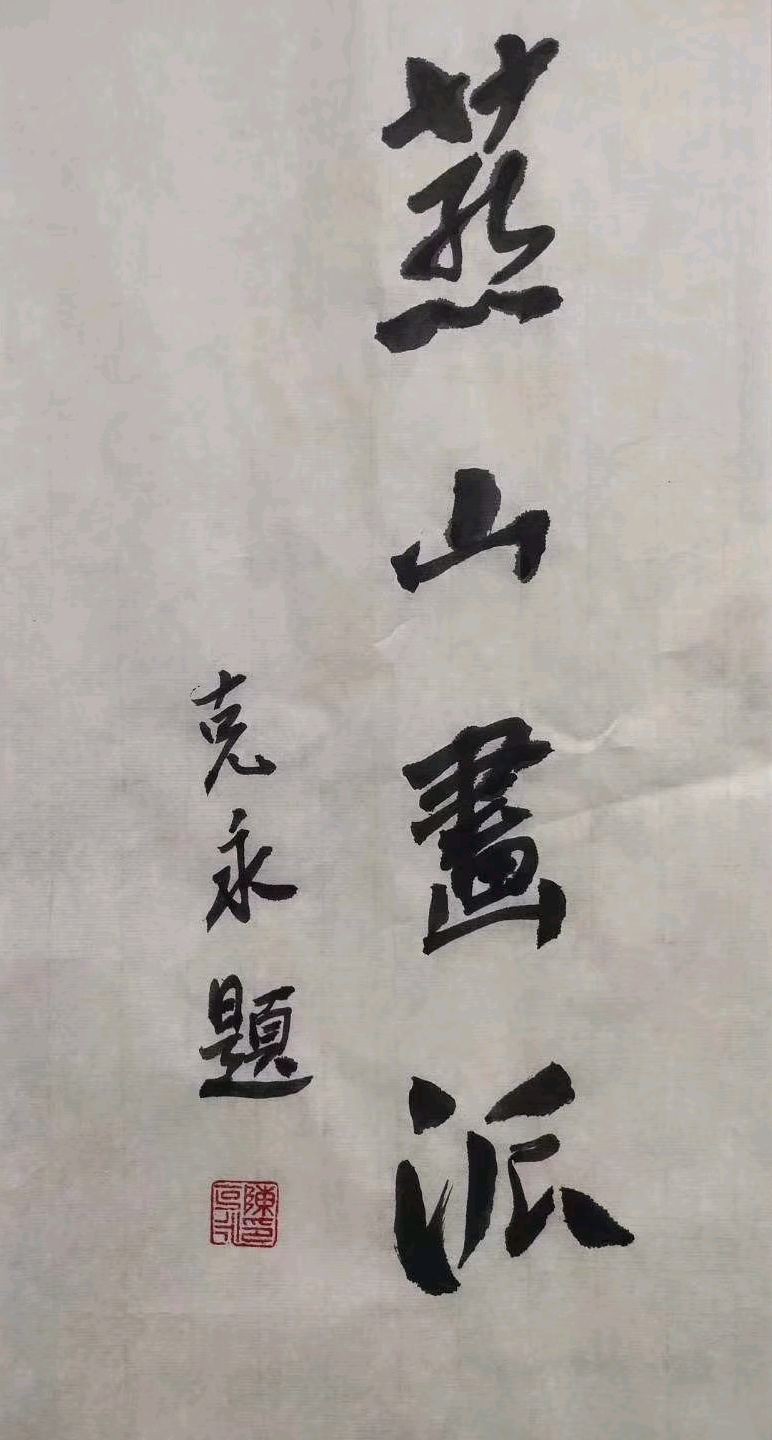 燕山畫派
克永題